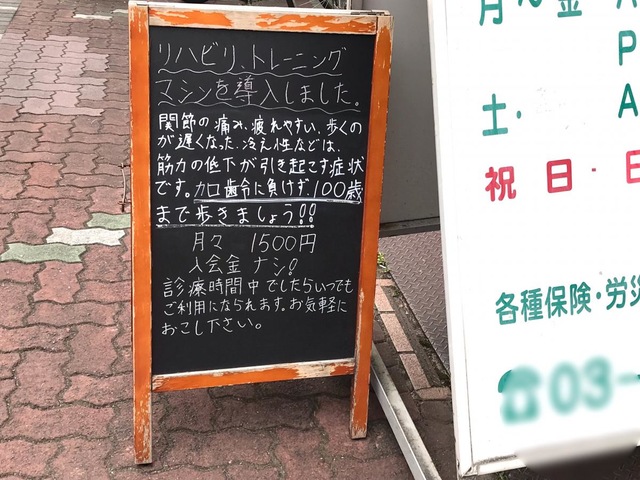 リハビリ、トレーニング
マシンを導入しました。
関節の痛み、疲れやすい、歩くの
が遅くなった、冷え性などは、
筋力の低下が引き起こす症状
です。加齢に負けず、100歳
まで歩きましょう!!
月々 1500円
入会金 ナシ!
診療時間中でしたらいつでも
ご利用になられます。お気軽に
おこし下さい。
月〜金
P
土・
A
祝日・日
各種保険・労災
☎03-